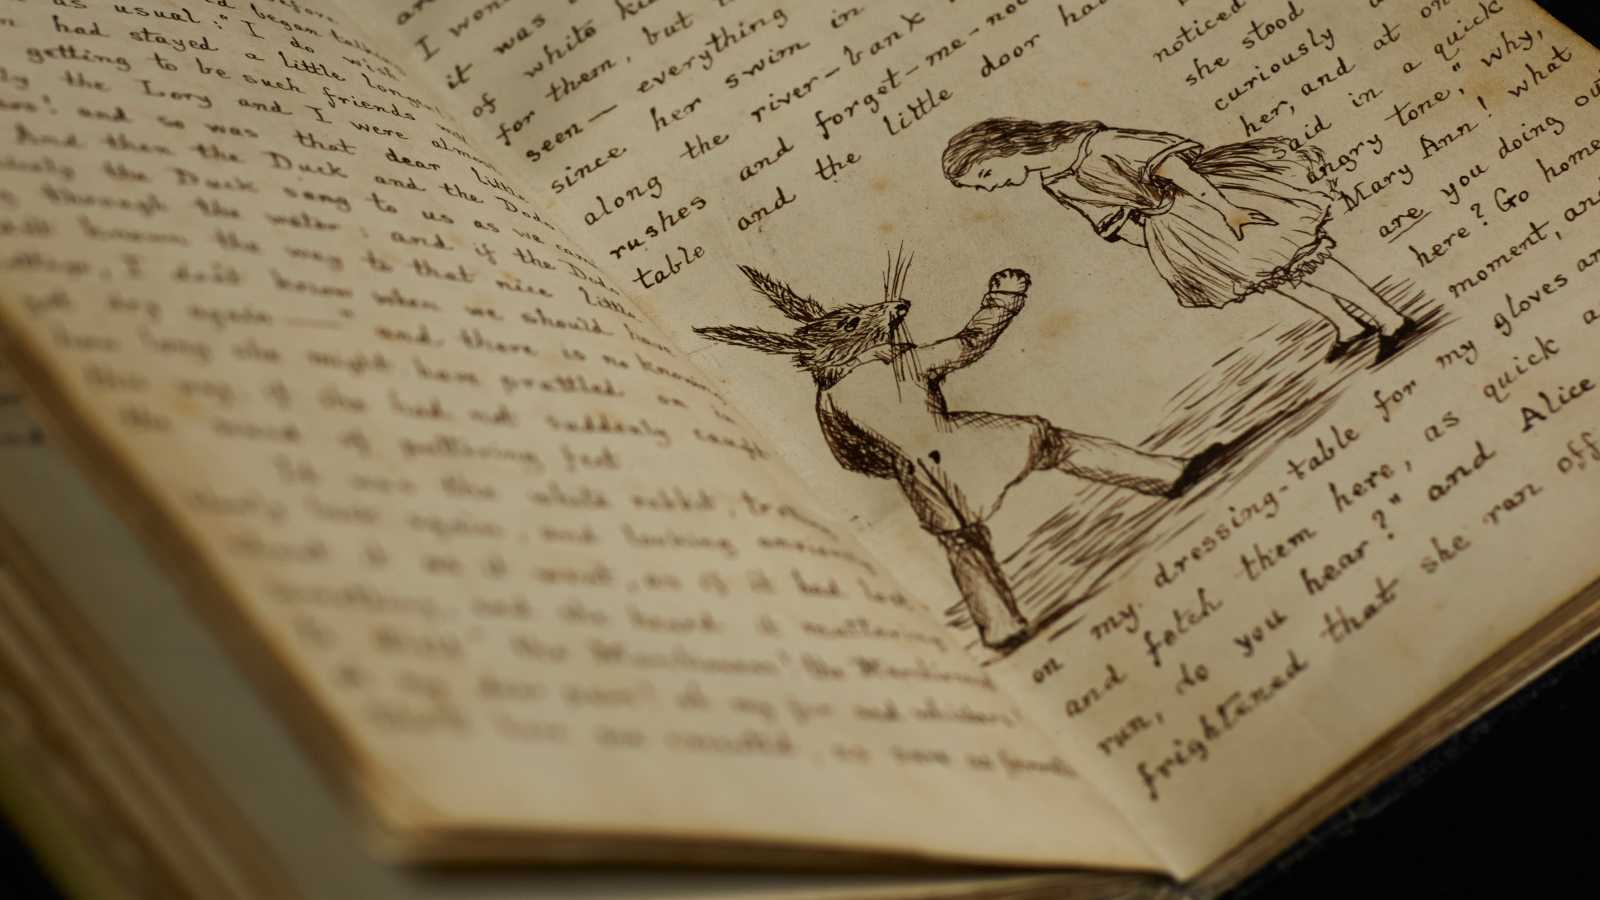 before
began talking
as usual: "I do wish
had stayed a little longer!
getting to be such friends
the Lory and I were almost
and so was that dear little
And then the Duck and the Dodo
the Duck sang to us as we came
through the water: and if the Dodo
known the way to that nice little
I don't know when we should have
dry again —" and there is no knowing
how long she might have prattled on in
this way, if she had not suddenly caught
the sound of pattering feet
It was the white rabbit, trotting
slowly back again, and looking
about it as it went, as if it had lost
something, and she heard it muttering
the Marchioness! the Marchioness
my dear paws! oh my fur and whiskers!
have me executed, as sure as ferrets
are
I wonder
it was
of white
for them, but
seen — everything
since her swim in
along the river-bank
rushes and forget-me-not
table and the little door had
noticed
she stood
curiously
her, and at once
said in a quick
angry tone, "why,
Mary Ann! what
are you doing out
here? Go home
moment, and
on my dressing-table for my gloves and
and fetch them here, as quick as
run, do you hear?" and Alice
frightened that she ran off